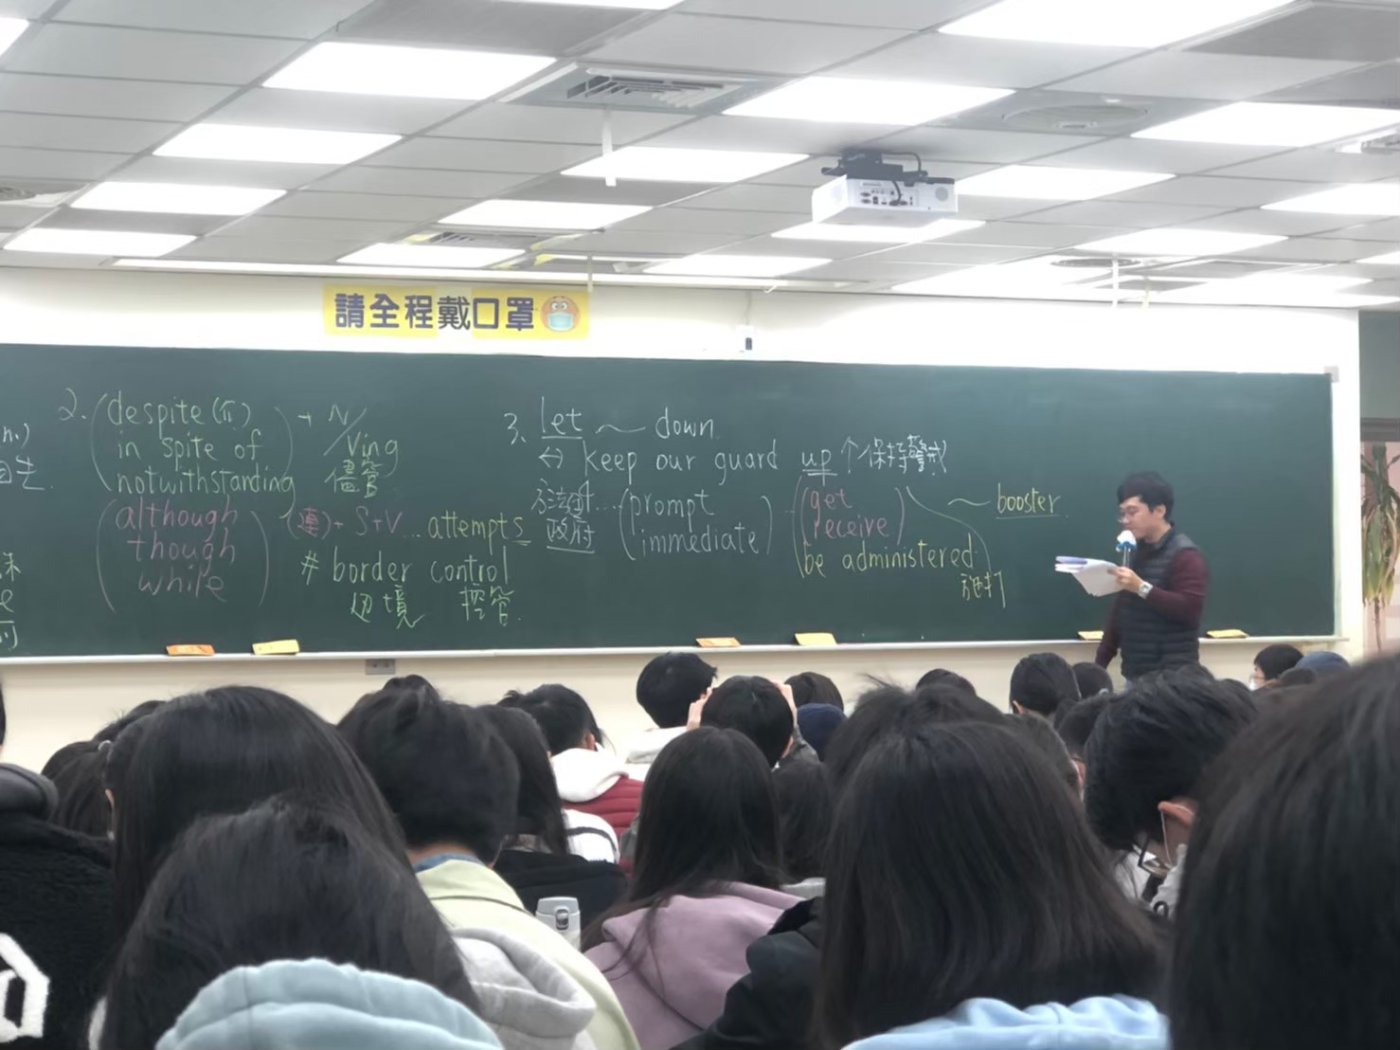 請全程戴口罩
n.)
2. despite (介) + N/Ving
in spite of
notwithstanding 儘管
although (連) + S+V ... attempts
though
while
# border control
邊境 控管
3. let ~ down
↔ keep our guard up 保持警戒
政府 ... (prompt immediate)
get
receive
be administered
施打
~ booster